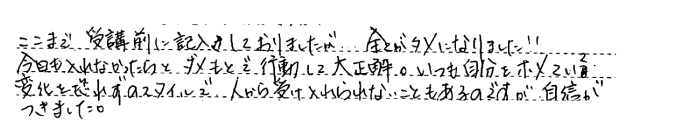 ここまで 受講前に記入をしておりましたが、全てがタメになりました!!
今日もとれなかったらとダメもとで行動して大正解。いつも自分をホメている
変化を恐れずのスタイルで、人から受け入れられないこともあるのですが、自信が
つきました。